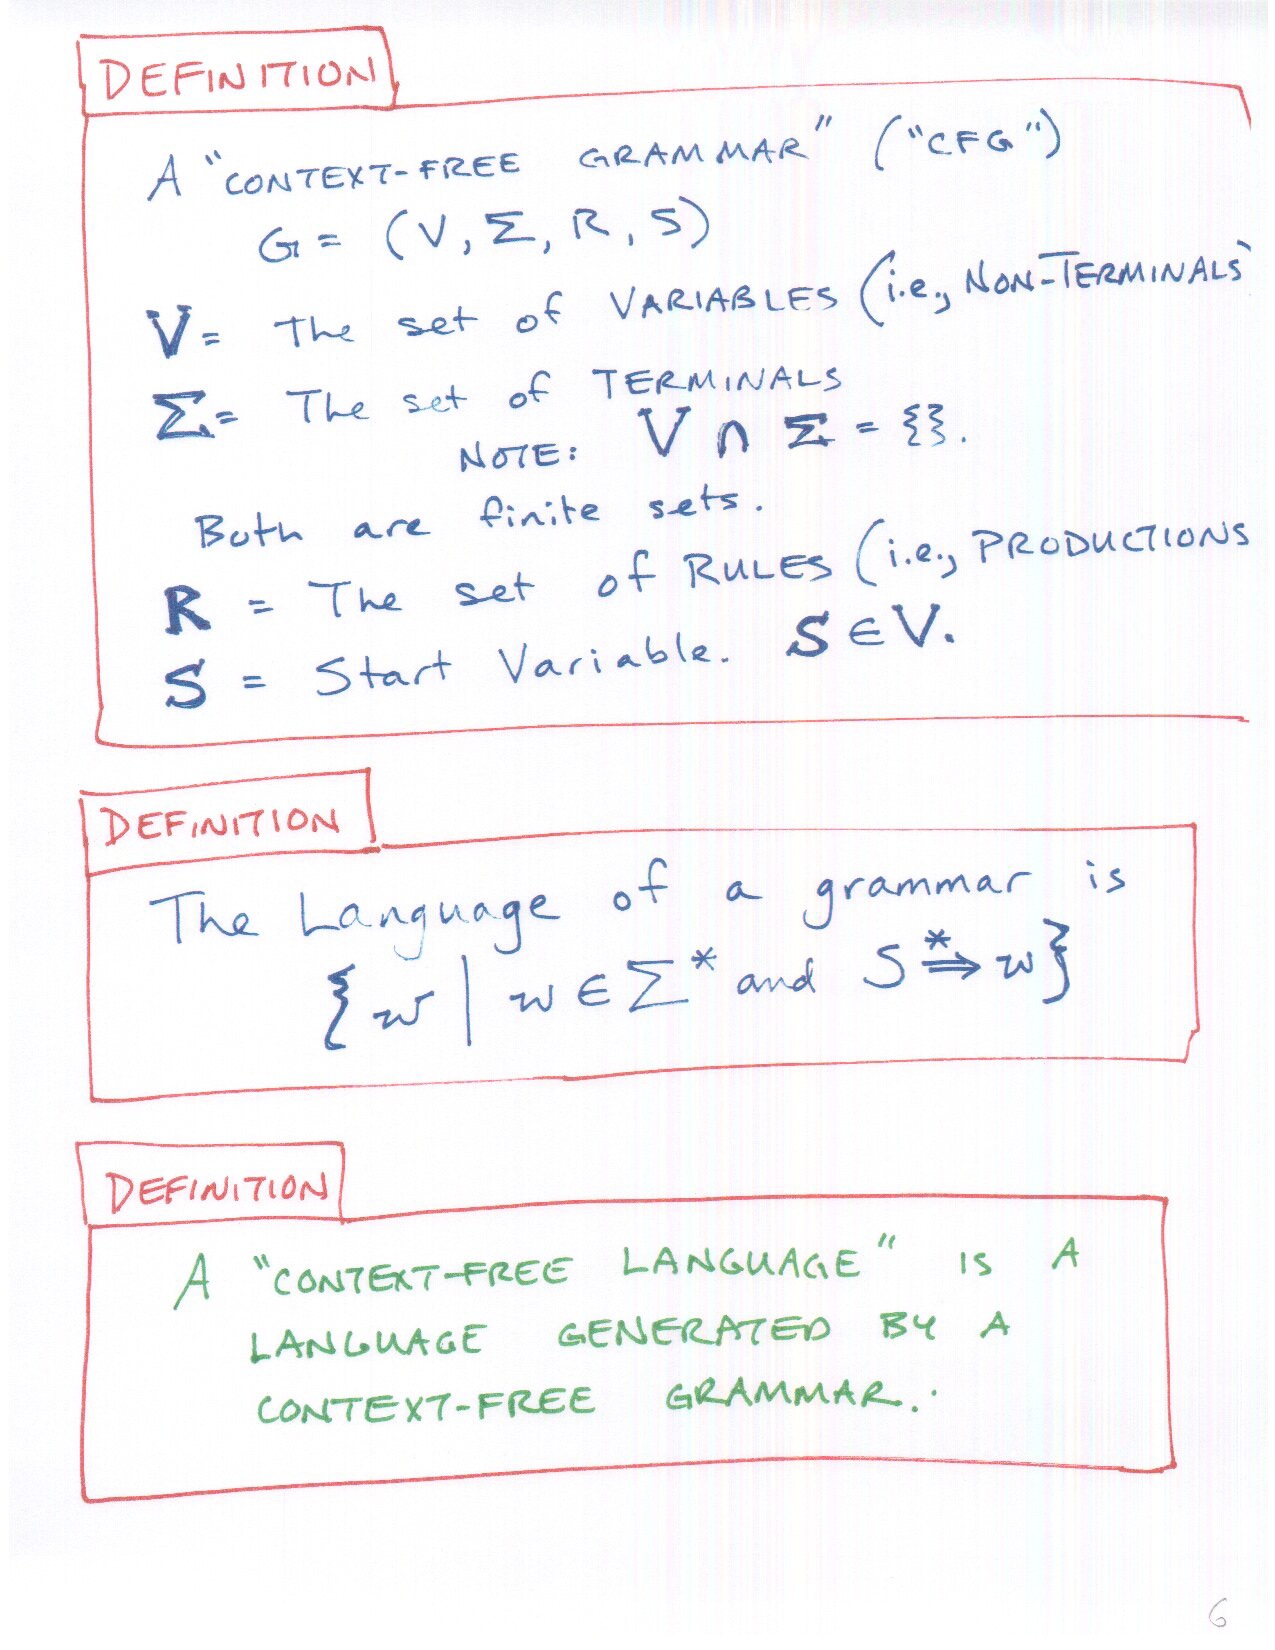 DEFINITION
A "CONTEXT-FREE GRAMMAR" ("CFG")
G = (V, Σ, R, S)
V = The set of VARIABLES (i.e., NON-TERMINALS
Σ = The set of TERMINALS
NOTE: V ∩ Σ = {}.
Both are finite sets.
R = The set of RULES (i.e., PRODUCTIONS
S = Start Variable. S ∈ V.
DEFINITION
The Language of a grammar is
{ w | w ∈ Σ* and S *⇒ w }
DEFINITION
A "CONTEXT-FREE LANGUAGE" IS A
LANGUAGE GENERATED BY A
CONTEXT-FREE GRAMMAR.
6